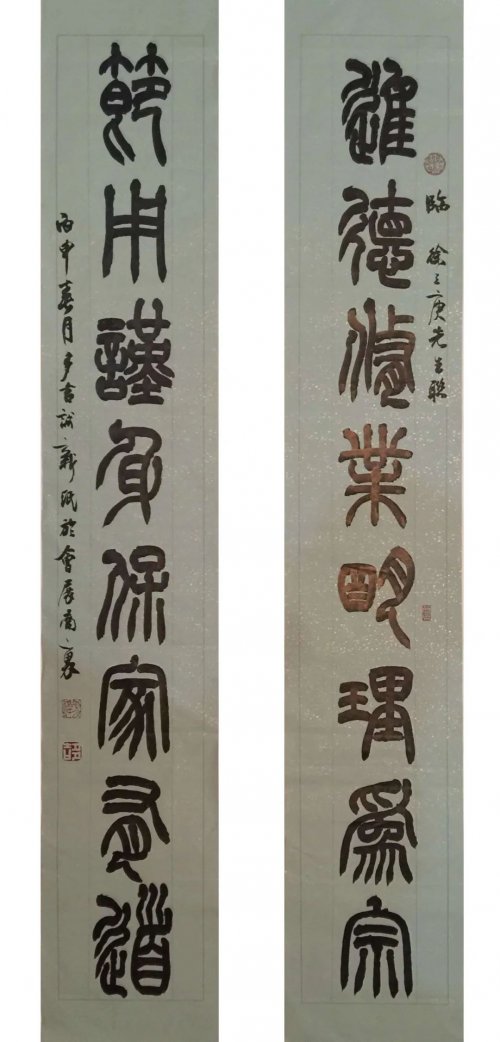 進德修業明理爲宗
臨徐三庚先生聯
節用謹身保家有道
丙申春月吉試新紙於會